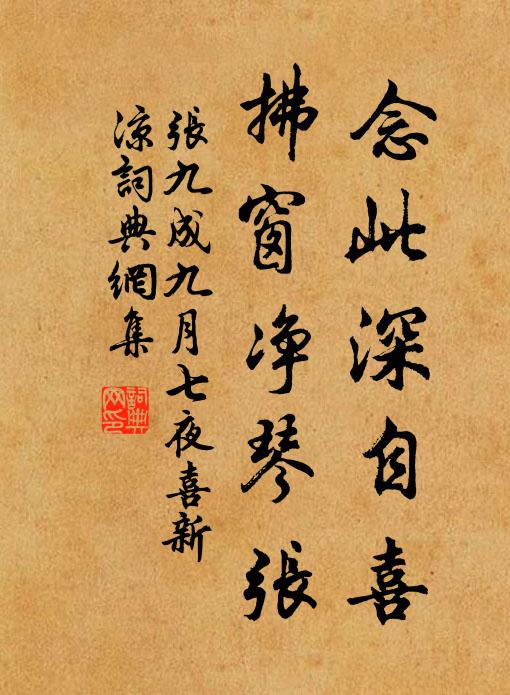 念此深自喜
拂窗净琴張
張九成九月七夜喜新
凉詞典網集
詞典
网印